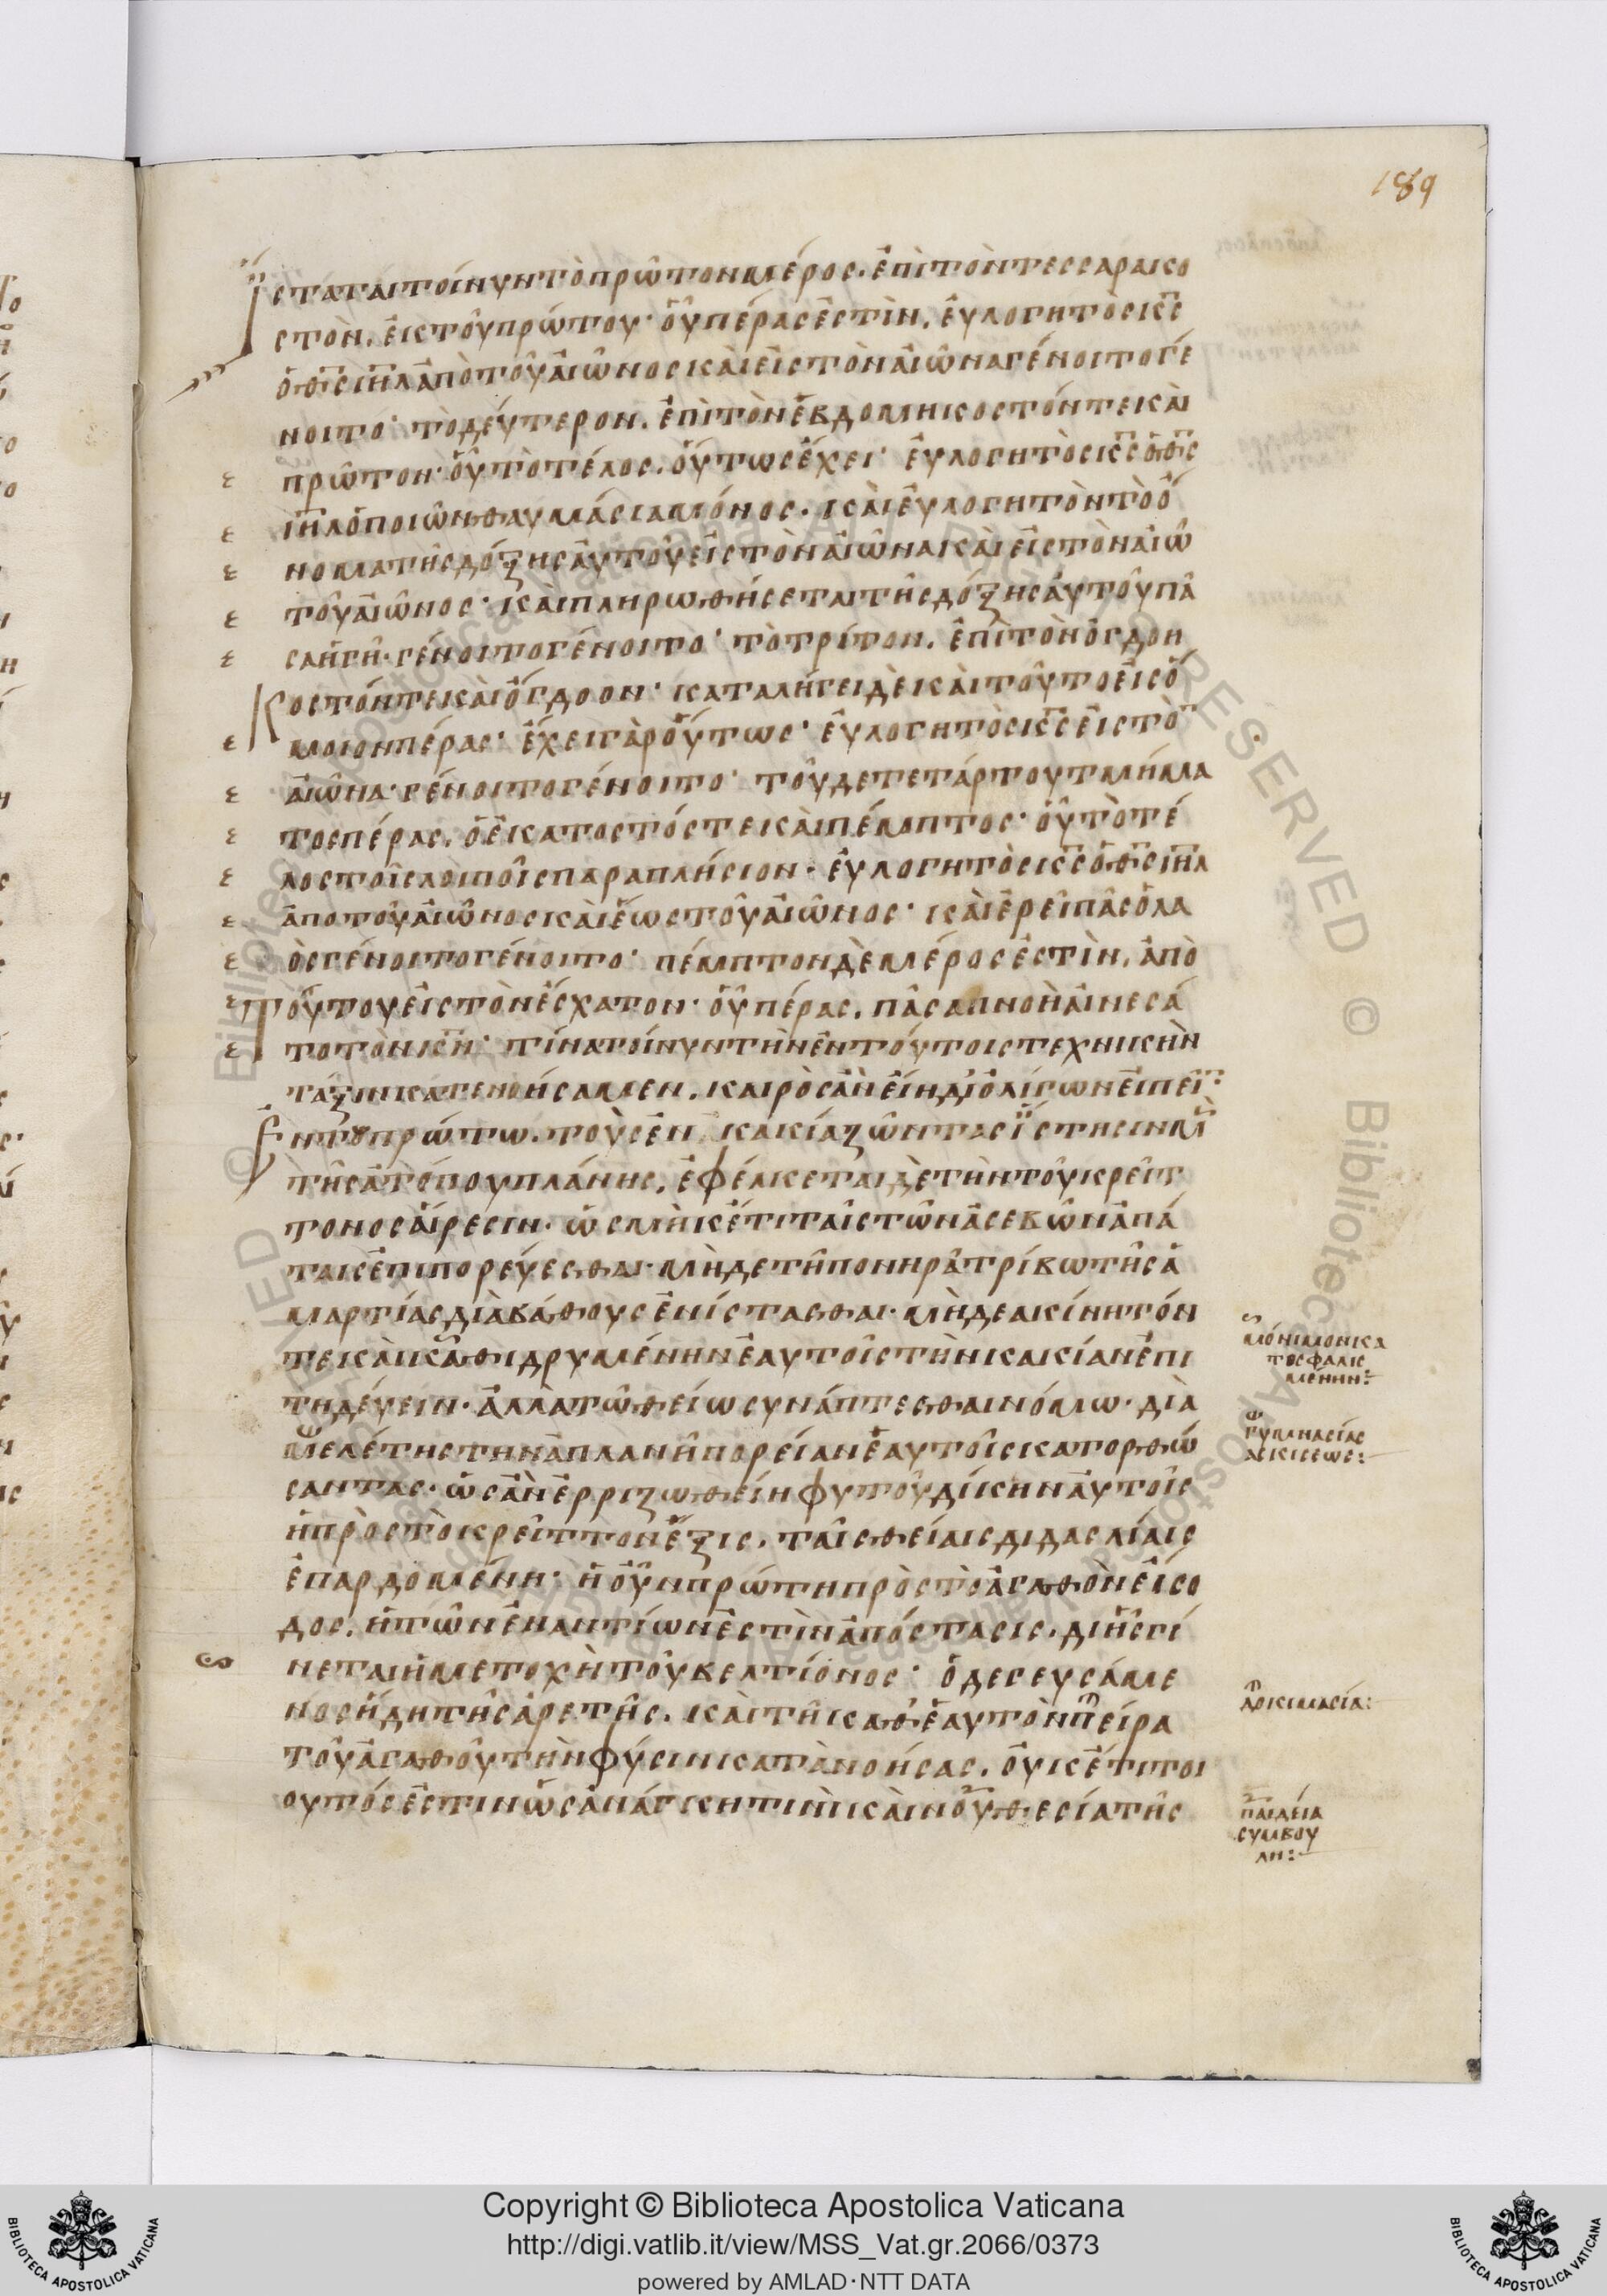 189
ἵσταται τοίνυν τὸ πρῶτον μέρος. ἐπὶ τὸν τεσσαρακο
στὸν. ἐκ τοῦ πρώτου· οὗ πέρας ἐστὶν. εὐλογητὸς κ̅ς̅
ὁ θ̅ς̅ ι̅η̅λ̅ ἀπὸ τοῦ αἰῶνος καὶ εἰς τὸν αἰῶνα γένοιτο γέ
νοιτο· τὸ δεύτερον. ἐπὶ τὸν ἑβδομηκοστόν τε καὶ
πρῶτον· οὗ τὸ τέλος. οὕτως ἔχει· εὐλογητὸς κ̅ς̅ ὁ θ̅ς̅
ι̅η̅λ̅ ὁ ποιῶν θαυμάσια μόνος. καὶ εὐλογητὸν τὸ ὄ
νομα τῆς δόξης αὐτοῦ εἰς τὸν αἰῶνα καὶ εἰς τὸν αἰῶ
τοῦ αἰῶνος· καὶ πληρωθήσεται τῆς δόξης αὐτοῦ πᾶ
σα ἡ γῆ· γένοιτο γένοιτο· τὸ τρίτον. ἐπὶ τὸν ὀγδοη
κοστόν τε καὶ ὄγδοον· καταλήγει δὲ καὶ τοῦτο εἰς ὅ
μοιον πέρας· ἔχει γὰρ οὕτως· εὐλογητὸς κ̅ς̅ εἰς τὸ̅
αἰῶνα· γένοιτο γένοιτο· τοῦ δε τετάρτου τμήμα
τος πέρας. ὁ ἑκατοστός τε καὶ πέμπτος· οὗ τὸ τέ
λος τοῖς λοιποῖς παραπλήσιον· εὐλογητὸς κ̅ς̅ ὁ θ̅ς̅ ι̅η̅λ̅
ἀπο τοῦ αἰῶνος καὶ ἕως τοῦ αἰῶνος· καὶ ἐρεῖ πᾶς ὁ λα
ὸς γένοιτο γένοιτο· πέμπτον δὲ μέρος ἐστὶν. ἀπὸ
τούτου εἰς τὸν ἔσχατον· οὗ πέρας. πᾶσα πνοὴ αἰνεσά
τω τὸν κ̅ν̅· τίνα τοίνυν τὴν ἐν τούτοις τεχνικὴν
τάξιν κατενοήσαμεν. καιρὸς ἂν εἴη δι' ὀλίγων εἰπεῖ̅:
ἐν τῶ πρώτω. τοὺς ἐν κακία ζῶντας ἵστησιν μ̅
τῆς ἀτόπου πλάνης. ἐφέλκεται δὲ τὴν τοῦ κρείτ
τονος αἵρεσιν. ὡς μὴ κέτι ταῖς τῶν ἀσεβῶν ἀπά
ταις ἐπιπορεύεσθαι. μὴδε τῆ πονηρᾶ τρίβω τῆς ἁ
μαρτίας διὰ βάθους ἐνίστασθαι. μὴδε ακίνητόν
τε καὶ καθιδρυμένην ἑαυτοῖς τὴν κακίαν ἐπι
τηδεύειν. ἀλλὰ τῶ θείω συνάπτεσθαι νόμω. διὰ
μελέτης τὴν ἀπλανῆ πορείαν ἑαυτοῖς κατορθώ
σαντας· ὡς ἂν ἐρριζωθείη φυτοῦ δίκην αὐτοῖς
ἡ πρὸς τὸ κρεῖττον ἕξις. ταῖς θείαις διδασλίαις
ἐπαρδομένη· ἡ οὖν πρώτη πρὸς τὸ ἀγαθὸν εἴσο
δος. ἡ τῶν ἐναντίων ἐστὶν ἀπόστασις. δι ἧς γί
νεται ἡ μετοχὴ τοῦ βελτίονος· ὁ δε γευσάμε
νος ἤδη τῆς ἀρετῆς. καὶ τῆ καθ' ἑαυτὸν πείρα
τοῦ ἀγαθοῦ τὴν φύσιν κατὰνοήσας. οὐ κέτι τοι
ουτός ἐστιν ὡς ἀνάγκη τινὶ καὶ νουθεσία τῆς
μόνιμον κα
τησφαλισ
μένην:
γυμνασίας
ασκισεως:
δοκιμασία:
παιδεία
συμβου
λη:
Copyright © Biblioteca Apostolica Vaticana
http://digi.vatlib.it/view/MSS_Vat.gr.2066/0373
powered by AMLAD·NTT DATA